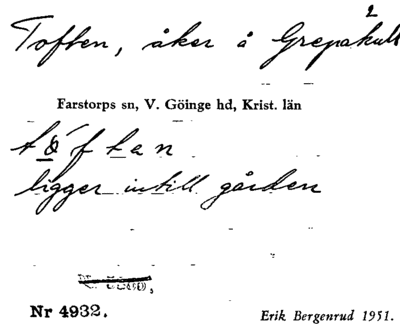 Toften, åker å Grepakull 2
Farstorps sn, V. Göinge hd, Krist. län
ligger intill gården
Nr 4932.
Erik Bergenrud 1951.